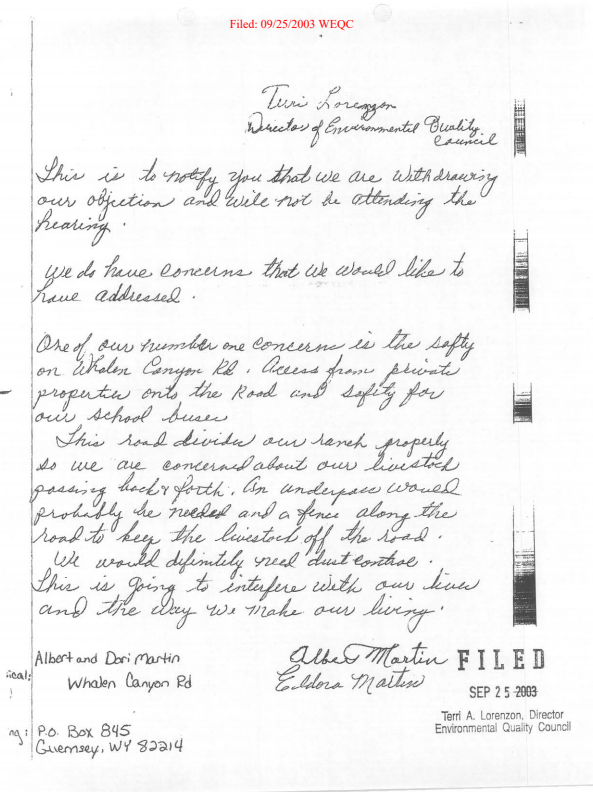 Filed: 09/25/2003 WEQC
Terri Lorenzon
Director of Environmental Quality
Council
This is to notify you that we are withdrawing
our objection and will not be attending the
hearing.
We do have concerns that we would like to
have addressed.
One of our number one concerns is the safty
on Whalen Canyon Rd. Access from private
properties onto the Road and safety for
our school buses
This road divides our ranch property
so we are concerned about our livestock
passing back & forth. An underpass would
probably be needed and a fence along the
road to keep the livestock off the road.
We would difinitely need dust control.
This is going to interfere with our lives
and the way we make our living.
Albert and Dori Martin
Whalen Canyon Rd
P.O. Box 845
Guernsey, WY 82214
Albert Martin
Eldora Martin
FILED
SEP 25 2003
Terri A. Lorenzon, Director
Environmental Quality Council
ical:
ng: